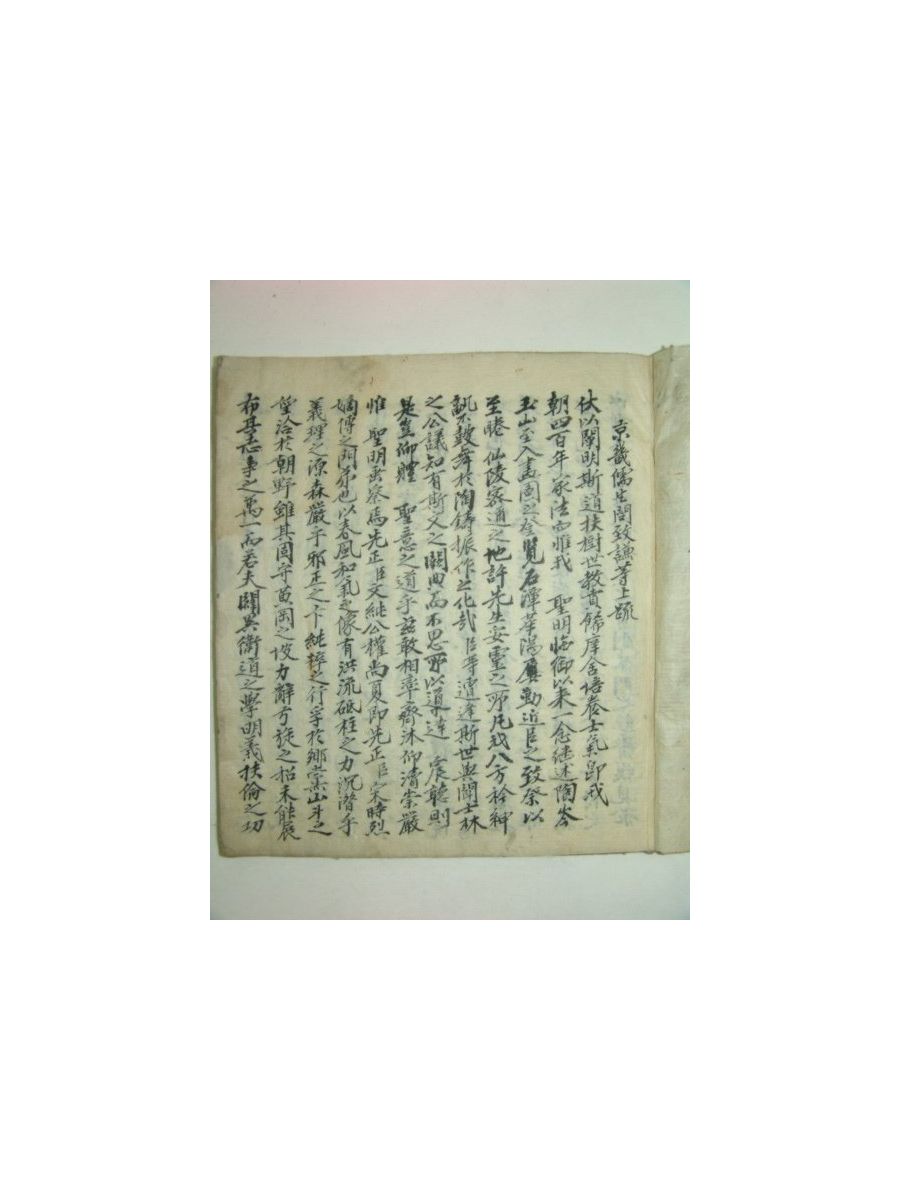 京畿儒生閔致謙等上疏
伏以闡明斯道扶樹世教責歸庠舍培養士氣即我
朝四百年家法而惟我 聖明臨御以来一念継述陶岑
玉山宝入畵圖之登覽石潭華陽屢勤近臣之致祭以
至睠 仙陵密通之地許先生安靈之所凡我八方衿紳
孰不鼓舞於陶鋳振作之化哉臣等遭逢斯世與聞士林
之公議知有斯文之闕典而不思所以導達 宸聽則
是豈仰軆 聖意之道乎玆敢相率齋沐仰凟崇嚴
惟 聖明垂察焉先正臣文純公權尚夏即先正臣宋時烈
嫡傳之門弟也以春風和氣之像有洪流砥柱之力沉潛乎
義理之源森嚴乎邪正之卞純粹之行孚於鄉黨山斗之
望洽於朝野雖其固守黄岡之坡力辭弓旌之招未能展
布其志事之萬一而若夫闢異衛道之學明義扶倫之功